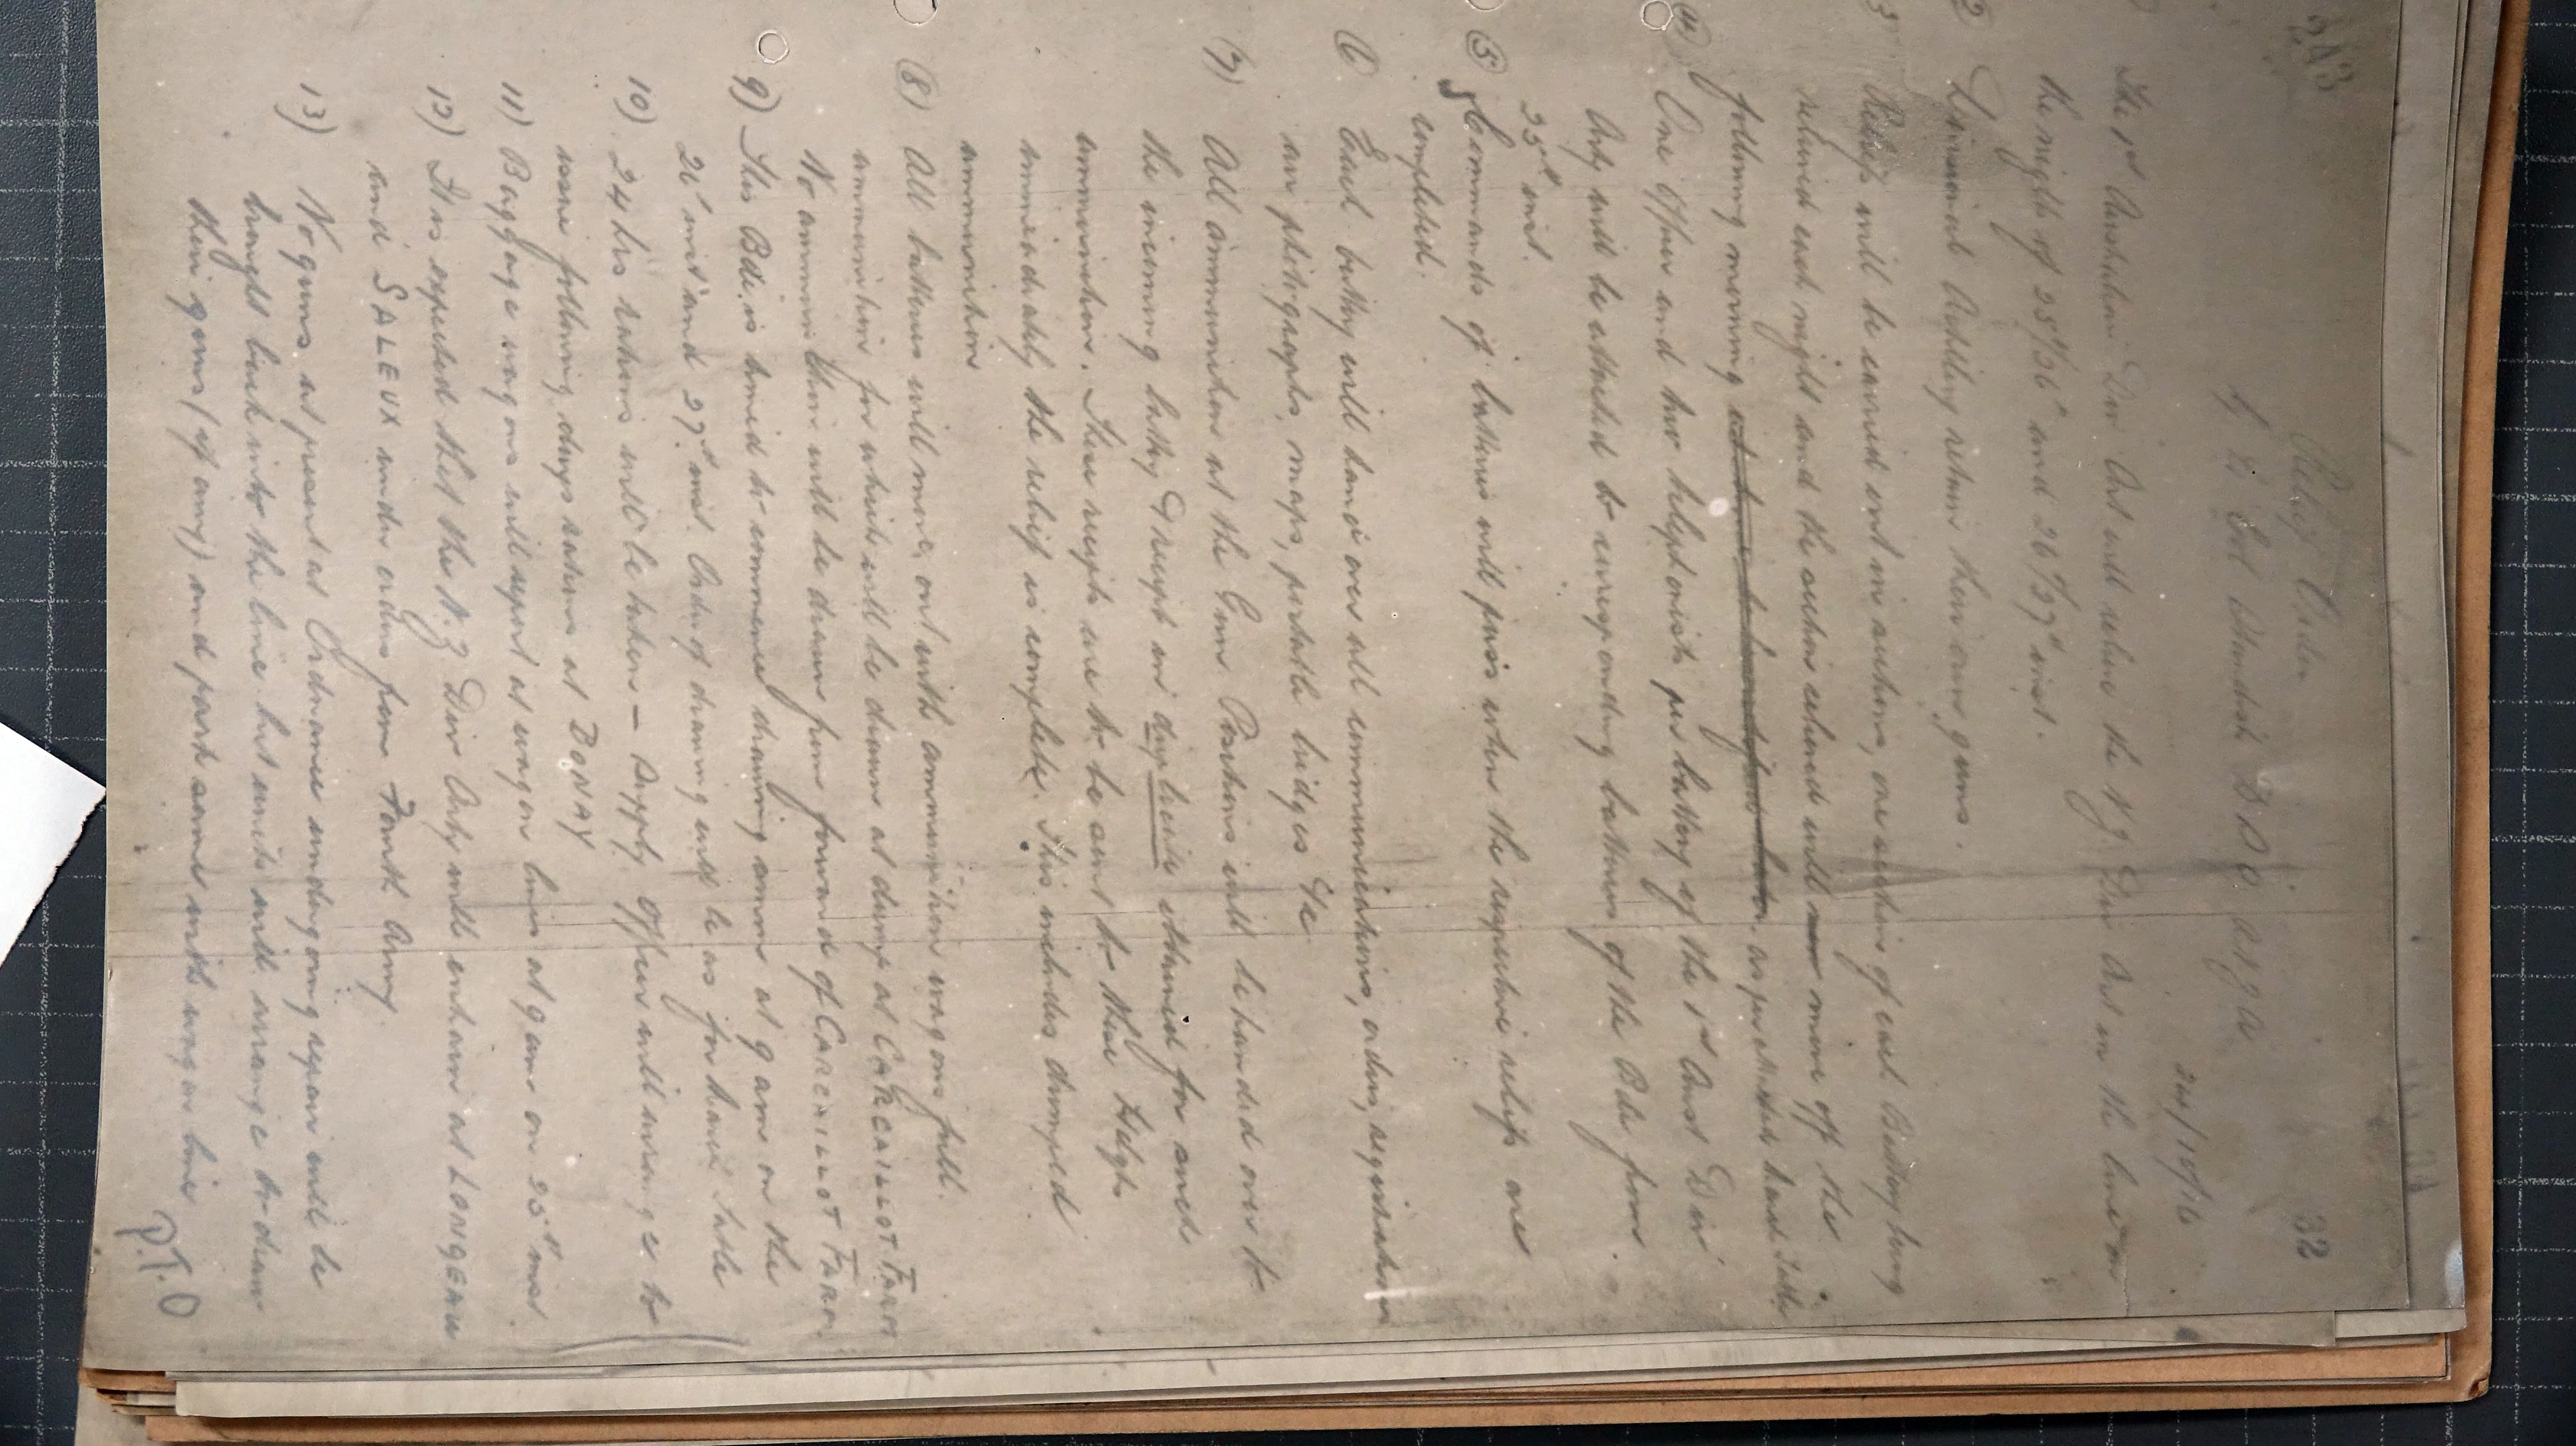 2A3
32
Relief Order
by Lt Col Standish D S O RFA
24/10/16
The 1st Australian Div Art will relieve the N.Z. Div Art in the line on
the night of 25th/26th and 26th/27th inst.
2 Divisional Artillery retain their own guns.
3 Reliefs will be carried out in sections, one section of each Battery being
relieved each night and the section relieved will move off the
following morning as per March Table
(4) One officer and two telephonists per battery of the 1st Aust Div
Arty will be attached to corresponding batteries of the Bde from
25th inst.
(5) Commands of batteries will pass when the respective reliefs are
completed.
(6 Each battery will hand over all communications, orders, registration
air photographs, maps, portable bridges &c
7) All ammunition at the Gun Positions will be handed over to
the incoming battery & receipt in duplicate obtained for such
ammunition. These receipts are to be sent to these Hdqrs
immediately the relief is complete. This includes dumped
ammunition
(8) All batteries will move out with ammunition wagons full.
ammunition for which will be drawn at dump at CARCAILLOT FARM
No ammunition will be drawn from forward of CARCAILLOT FARM.
9) This Bde is timed to commence drawing ammn at 9 am on the
26th inst and 27th inst. Order of drawing will be as for March Table
10) 24 hrs rations will be taken — Supply Officer will arrange to
issue following days rations at BONAY
11) Baggage wagons will report at wagon lines at 9 am on 25th inst.
12) It is expected that the N.Z Div Arty will entrain at LONGEAU
and SALEUX under orders from Fourth Army.
13) No guns at present at Ordnance undergoing repair will be
brought back into the line but units will arrange to draw
their guns (if any) and park same with wagon line
P.T.O